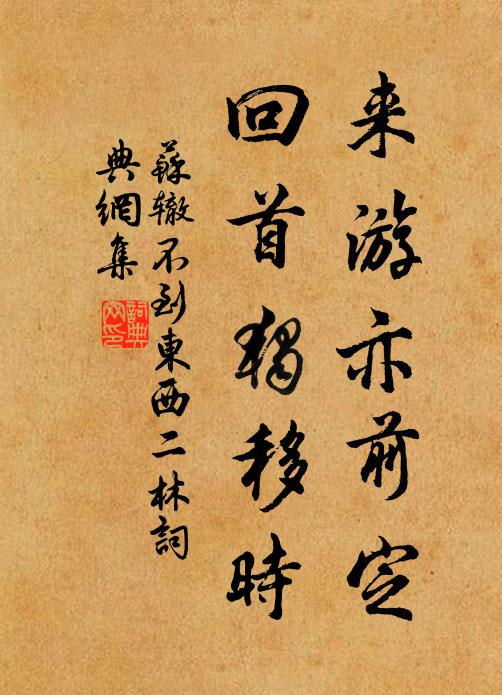 来游亦前定
回首独移時
蘇辙不到東西二林詞
典網集
詞典
网印